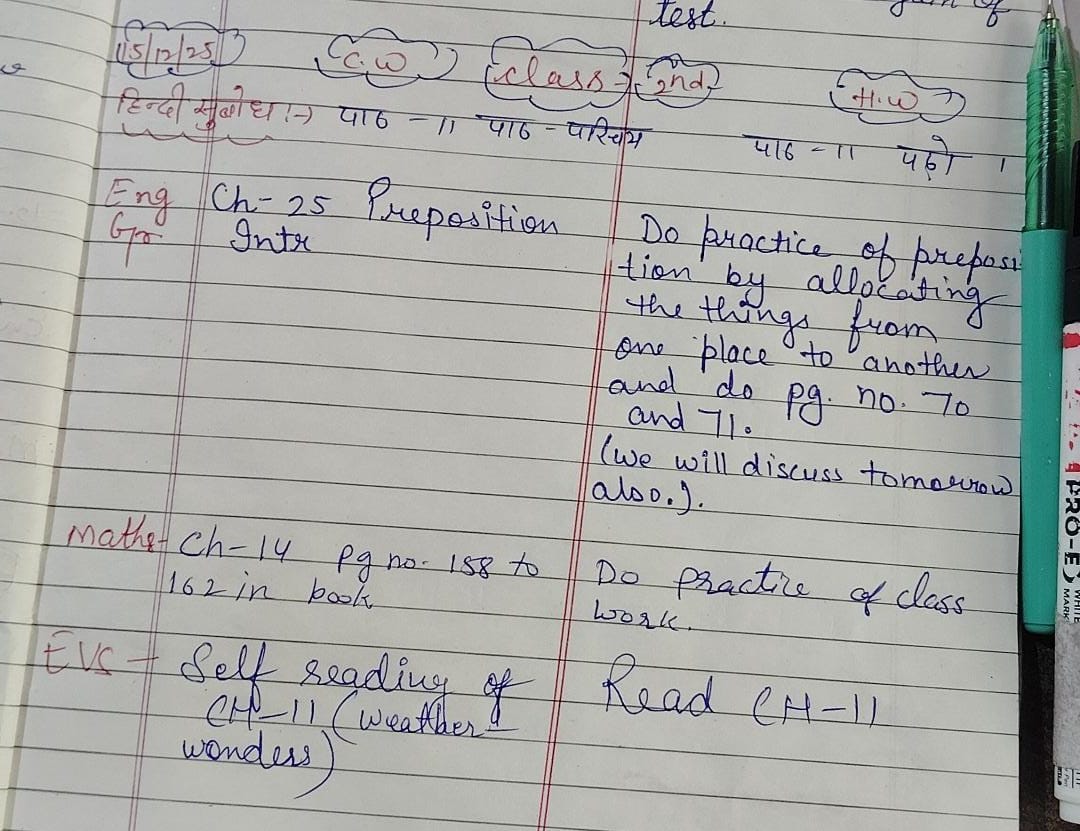 test.
of
15/12/25 C.W Class - 2nd H.W
हिन्दी सुबोध :-) पाठ - 11 पाठ - परिचय पाठ - 11 पढ़ो ।
Eng Ch- 25 Preposition
Gr. Intr
Do practice of preposi
tion by allocating
the things from
one place to another
and do pg. no. 70
and 71.
(we will discuss tomorrow
also.).
Maths- Ch-14 pg no. 158 to
162 in book
Do practice of class
work.
EVS - Self reading of
CH-11 (weather
wonders)
Read CH-11
PRO-E
WHITE
MARK